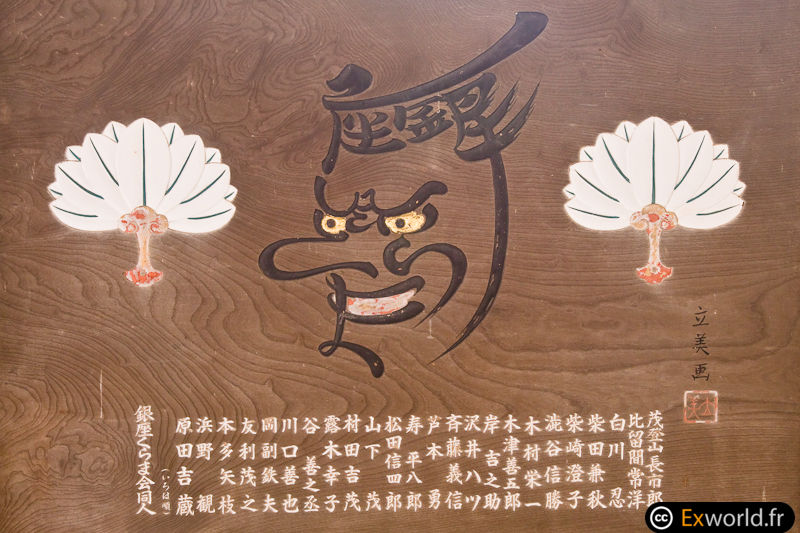 銀座
くらま
立美画
茂登山長市郎
比留間常洋
白川 忍
柴田兼秋
柴崎澄子
澁谷信勝
木村栄一
木津善五郎
岸 吉之助
沢井八ツ
斉藤義信
芦本 勇
寿 平八郎
松田信四郎
山下 茂
村田吉茂
露木幸子
谷 善之丞
川口善也
岡副鉄夫
友利茂之
本多矢枝
浜野 観
原田吉蔵
銀座くらま会同人(いろは順)
cc Exworld.fr